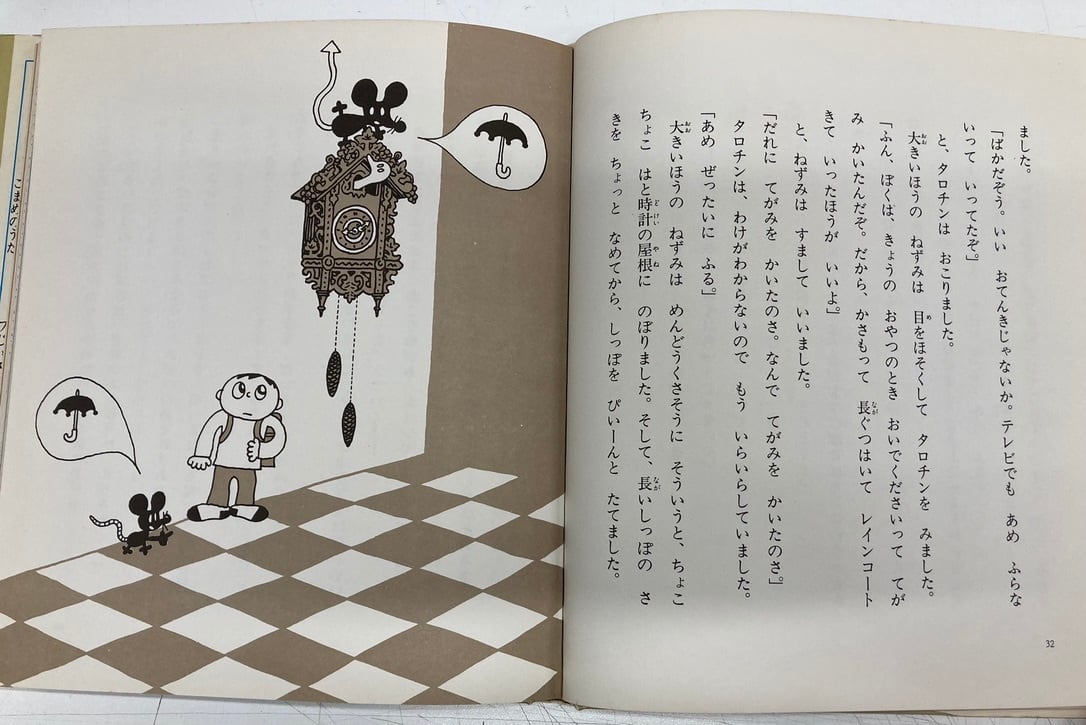 ました。
「ばかだぞう。いい　おてんきじゃないか。テレビでも　あめ　ふらな
いって　いってたぞ。」
と、タロチンは　おこりました。
大きいほうの　ねずみは　目をほそくして　タロチンを　みました。
「ふん、ぼくは、きょうの　おやつのとき　おいでくださいって　てが
み　かいたんだぞ。だから、かさもって　長ぐつはいて　レインコート
きて　いったほうが　いいよ。」
と、ねずみは　すまして　いいました。
「だれに　てがみを　かいたのさ。なんで　てがみを　かいたのさ。」
タロチンは、わけがわからないので　もう　いらいらしていました。
「あめ　ぜったいに　ふる。」
大きいほうの　ねずみは　めんどうくさそうに　そういうと、ちょこ
ちょこ　はと時計の屋根に　のぼりました。そして、長いしっぽの　さ
きを　ちょっと　なめてから、しっぽを　ぴいーんと　たてました。
32
こまめのうた